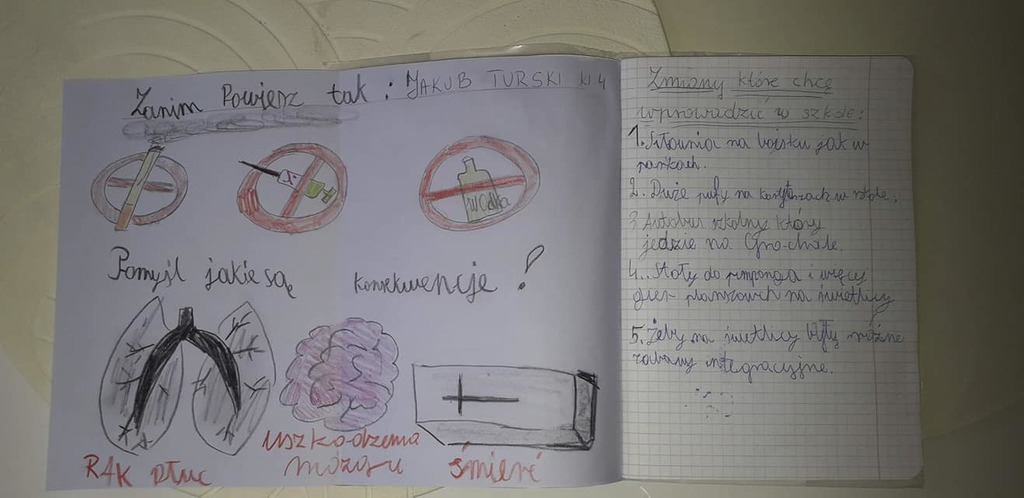 Zanim Powiesz tak : JAKUB TURSKI kl 4
WOdka
Pomyśl jakie są konsekwencje !
RAK Płuc
uszkodzenia
mózgu
śmierć
Zmiany które chcę
wprowadzić w szkole:
1. Siłownia na boisku jak w
parkach.
2. Duże pufy na korytarzach w szkole.
3 Autobus szkolny który
jedzie na Grochale.
4.. Stoły do pimponga i więcej
gier planszowich na świetlicy
5. Żeby na świetlicy były różne
zabawy integracyjne.